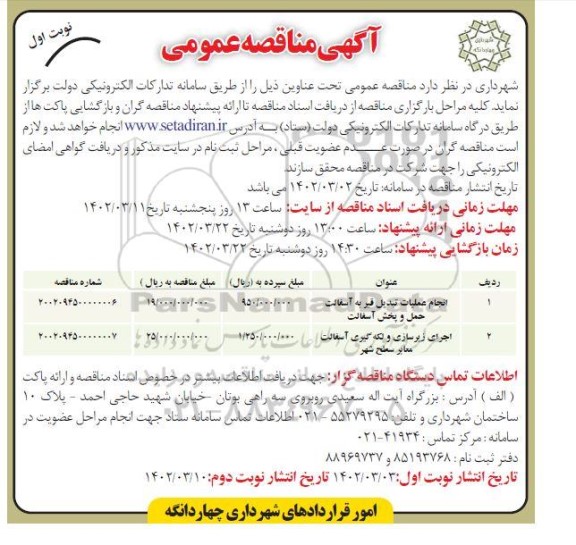 نوبت اول
شهرداری چهاردانگه
آگهی مناقصه عمومی
شهرداری در نظر دارد مناقصه عمومی تحت عناوین ذیل را از طریق سامانه تدارکات الکترونیکی دولت برگزار
نماید. کلیه مراحل بارگزاری مناقصه از دریافت اسناد مناقصه تا ارائه پیشنهاد مناقصه گران و بازگشایی پاکت ها از
طریق درگاه سامانه تدارکات الکترونیکی دولت (ستاد) به آدرس www.setadiran.ir انجام خواهد شد و لازم
است مناقصه گران در صورت عدم عضویت قبلی ، مراحل ثبت نام در سایت مذکور و دریافت گواهی امضای
الکترونیکی را جهت شرکت در مناقصه محقق سازند.
تاریخ انتشار مناقصه در سامانه: تاریخ ۱۴۰۲/۰۳/۰۲ می باشد
مهلت زمانی دریافت اسناد مناقصه از سایت: ساعت ۱۳ روز پنجشنبه تاریخ ۱۴۰۲/۰۳/۱۱
مهلت زمانی ارائه پیشنهاد: ساعت ۱۳:۰۰ روز دوشنبه تاریخ ۱۴۰۲/۰۳/۲۲
زمان بازگشایی پیشنهاد: ساعت ۱۴:۳۰ روز دوشنبه تاریخ ۱۴۰۲/۰۳/۲۲
ردیف عنوان مبلغ سپرده به (ریال) مبلغ مناقصه به ریال ) شماره مناقصه
۱ انجام عملیات تبدیل قیر به آسفالت حمل و پخش آسفالت ۹۵۰/۰۰۰/۰۰۰ ۱۹/۰۰۰/۰۰۰/۰۰۰ ۲۰۰۲۰۹۴۵۰۰۰۰۰۰۰۶
۲ اجرای زیرسازی و لکه گیری آسفالت معابر سطح شهر ۱/۲۵۰/۰۰۰/۰۰۰ ۲۵/۰۰۰/۰۰۰/۰۰۰ ۲۰۰۲۰۹۴۵۰۰۰۰۰۰۰۷
اطلاعات تماس دستگاه مناقصه گزار: جهت دریافت اطلاعات بیشتر در خصوص اسناد مناقصه و ارائه پاکت
( الف ) آدرس : بزرگراه آیت اله سعیدی روبروی سه راهی بوتان - خیابان شهید حاجی احمد - پلاک ۱۰
ساختمان شهرداری و تلفن ۵۵۲۷۹۲۹۵ - ۰۲۱ اطلاعات تماس سامانه ستاد جهت انجام مراحل عضویت در
سامانه : مرکز تماس : ۴۱۹۳۴-۰۲۱
دفتر ثبت نام : ۸۵۱۹۳۷۶۸ و ۸۸۹۶۹۷۳۷
تاریخ انتشار نوبت اول: ۱۴۰۲/۰۳/۰۳ تاریخ انتشار نوبت دوم: ۱۴۰۲/۰۳/۱۰
امور قراردادهای شهرداری چهاردانگه